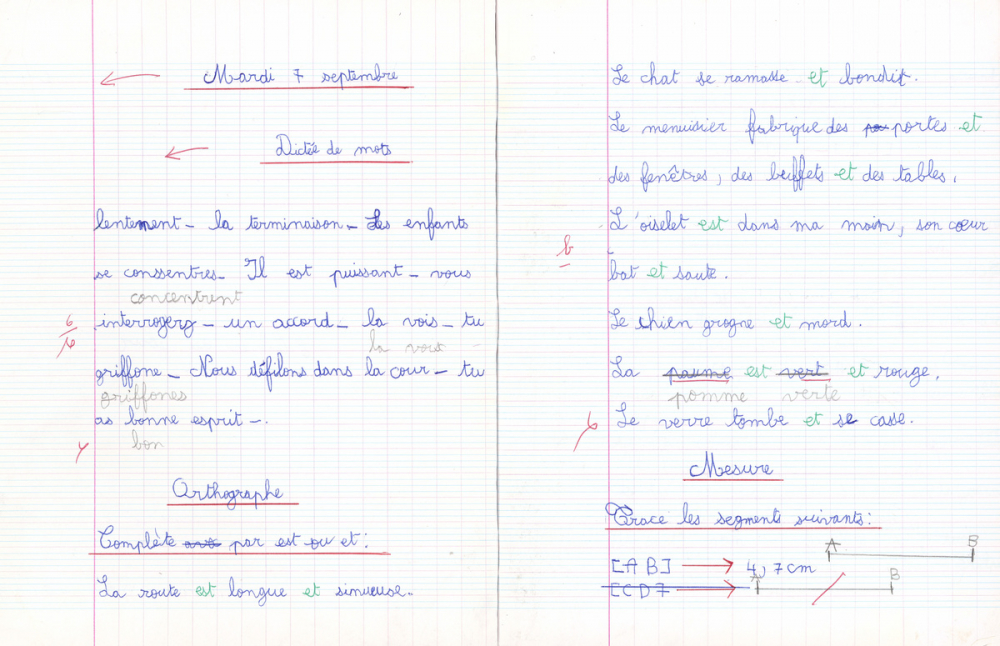 Mardi 7 septembre
Dictée de mots
lentement - la terminaison - Les enfants
se conssentres - Il est puissant - vous
concentrent
interrogerz - un accord - la vois - tu
la voix
griffone - Nous défilons dans la cour - tu
griffones
as bonne esprit -.
bon
Orthographe
Complète par est ou et :
La route est longue et sinueuse.
Le chat se ramasse et bondit.
Le menuisier fabrique des portes et
des fenêtres, des buffets et des tables.
L'oiselet est dans ma main, son cœur
b
bat et saute.
Le chien grogne et mord.
La paume est vert et rouge.
pomme verte
Le verre tombe et se casse.
Mesure
Trace les segments suivants :
A B
[AB] → 4,7 cm
A B
[CD]